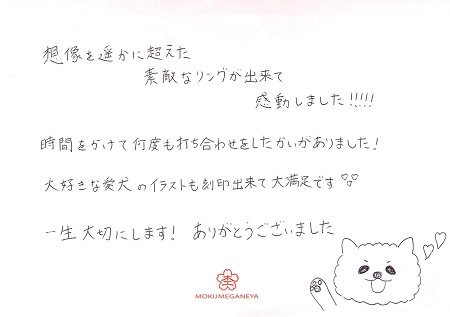 想像を遥かに超えた
素敵なリングが出来て
感動しました!!!!!
時間をかけて何度も打ち合わせをしたかいがありました!
大好きな愛犬のイラストも刻印出来て大満足です♡
一生大切にします! ありがとうございました
MOKUMEGANEYA